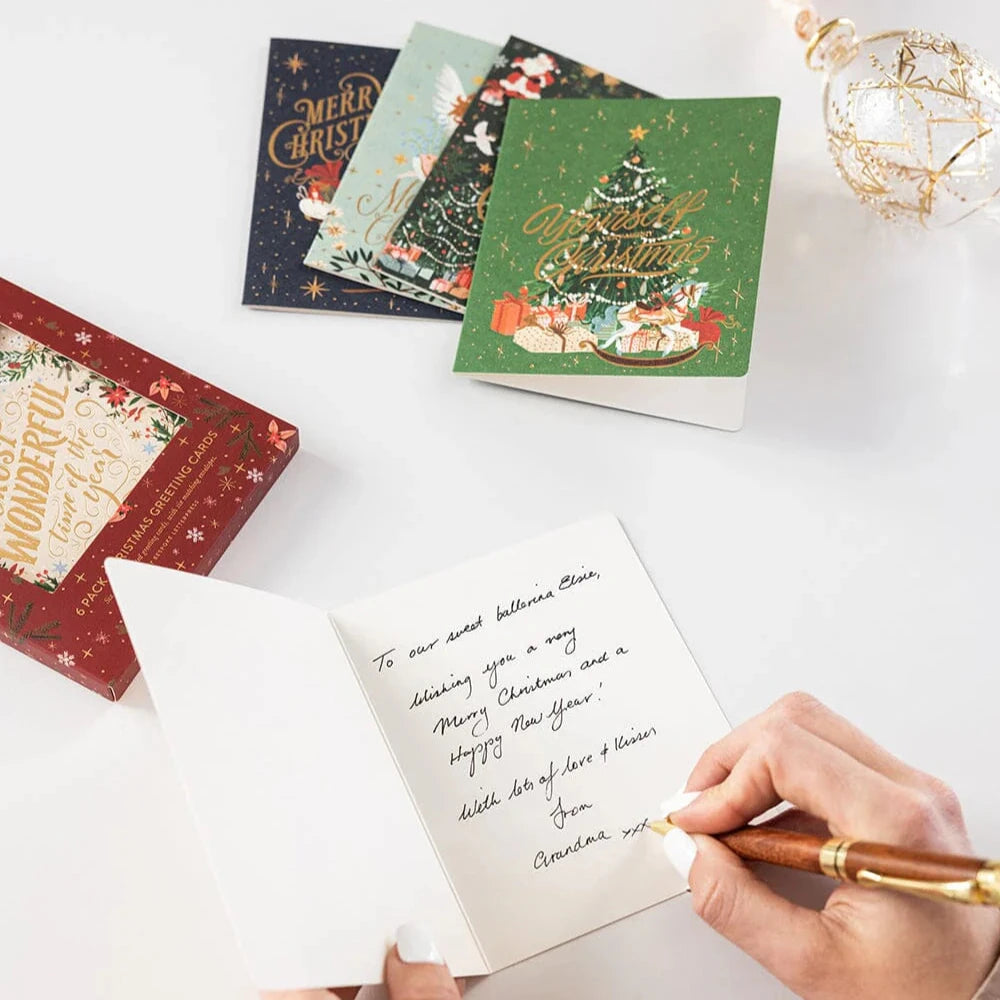 MERRY
CHRIST
Yourself
Christmas
WONDERFUL
time of the
year
6 PACK CHRISTMAS GREETING CARDS
BESPOKE LETTERPRESS
To our sweet ballerina Elsie,
Wishing you a very
Merry Christmas and a
Happy New Year!
With lots of love & Kisses
From
Grandma xxx